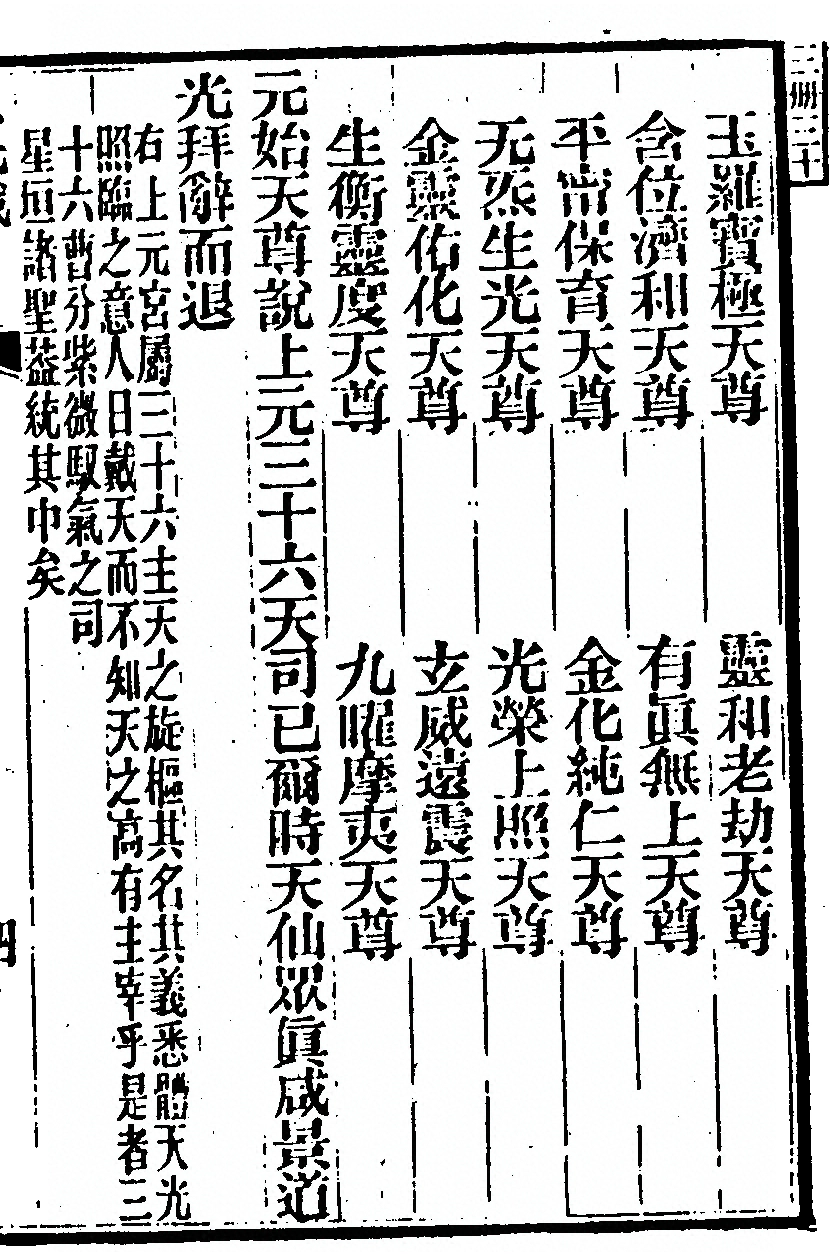 三十
玉羅寶極天尊　靈和老劫天尊
含位濟和天尊　有眞無上天尊
平甯保育天尊　金化純仁天尊
无炁生光天尊　光榮上照天尊
金靈佑化天尊　玄威遠震天尊
生衡靈度天尊　九曜摩夷天尊
元始天尊說上元三十六天司已爾時天仙眾眞咸景道
光拜辭而退
右上元宮屬三十六主天之旋樞其名其義悉體天光
照臨之意人日戴天而不知天之高有主宰乎是者三
十六曹分紫微馭氣之司
星垣諸聖葢統其中矣
四